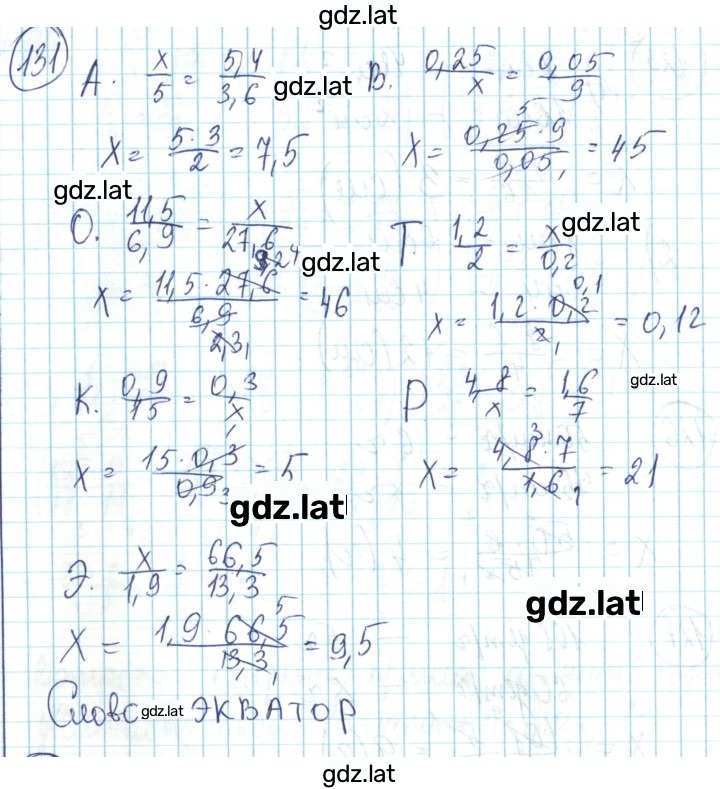 gdz.lat
131
А. x/5 = 5,4/3,6 gdz.lat В. 0,25/x = 0,05/9
x = 5·3/2 = 7,5 x = 0,25·9/0,05 = 45
gdz.lat
О. 11,5/6,9 = x/27,6 Т. 1,2/2 = x/0,2 gdz.lat
x = 11,5·27,6/6,9 = 46 gdz.lat x = 1,2·0,2/2 = 0,12
К. 0,9/15 = 0,3/x Р 4,8/x = 1,6/7 gdz.lat
x = 15·0,3/0,9 = 5 x = 4,8·7/1,6 = 21
gdz.lat
Э. x/1,9 = 66,5/13,3 gdz.lat
x = 1,9·66,5/13,3 = 9,5
Слово gdz.lat ЭКВАТОР
gdz.lat